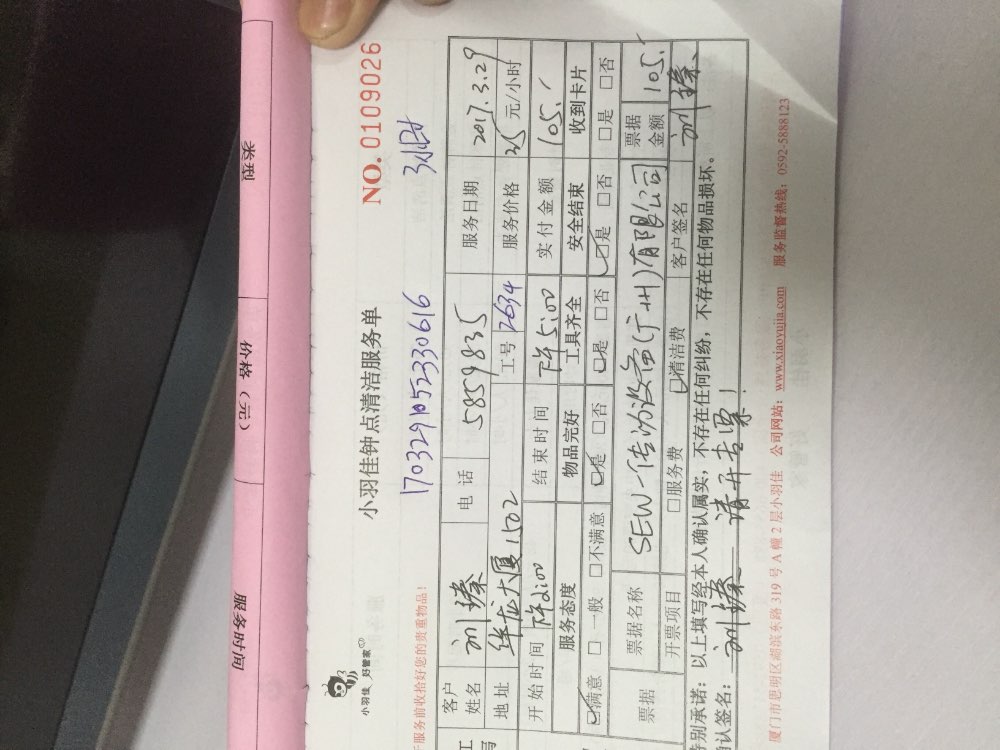 类型
价格（元）
服务时间
小羽佳 好管家
小羽佳钟点清洁服务单
NO. 0109026
服务前收拾好您的贵重物品！
1703291052330616 3小时
客户姓名 电话 5859835 服务日期 2017.3.29
地址 华龙大厦1502 工号 2634 服务价格 35 元/小时
开始时间 下午2:00 结束时间 下午5:00 实付金额 105.
服务态度 物品完好 工具齐全 安全结束 收到卡片
☑满意 □一般 □不满意 ☑是 □否 ☑是 □否 ☑是 □否 □是 □否
票据 票据名称 SEW-传动设备(广州)有限公司 票据金额 105.
开票项目 □服务费 ☑清洁费 客户签名
特别承诺：以上填写经本人确认属实，不存在任何纠纷，不存在任何物品损坏。
确认签名： 请开专票！
厦门市思明区湖滨东路 319 号 A 幢 2 层小羽佳 公司网站：www.xiaoyujia.com 服务监督热线：0592-5888123